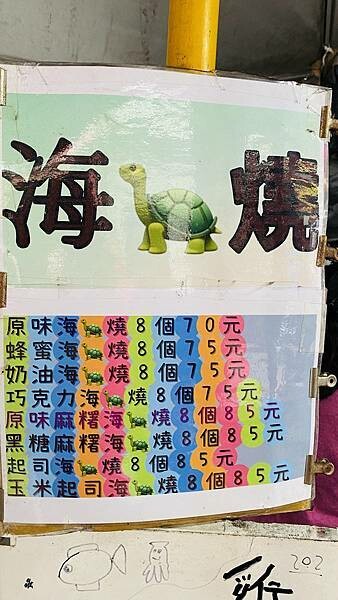 海🐢燒
原味海🐢燒8個70元
蜂蜜海🐢燒8個75元
奶油海🐢燒8個75元
巧克力海🐢燒8個75元
原味麻糬海🐢燒8個85元
黑糖麻糬海🐢燒8個85元
起司海🐢燒8個85元
玉米起司海🐢燒8個85元
202